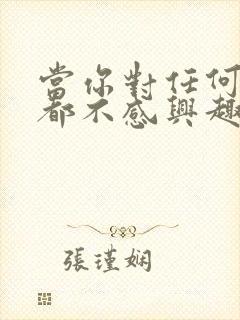 當你對任何
都不感興趣
張瑾嫻